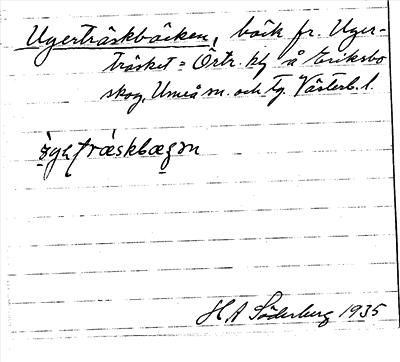 Ugerträskbäcken, bäck fr. Uger-
träsket = Örtr. kg å Eriksbo
skog, Umeå sn. och tg. Västerb. l.
H A Söderberg 1935